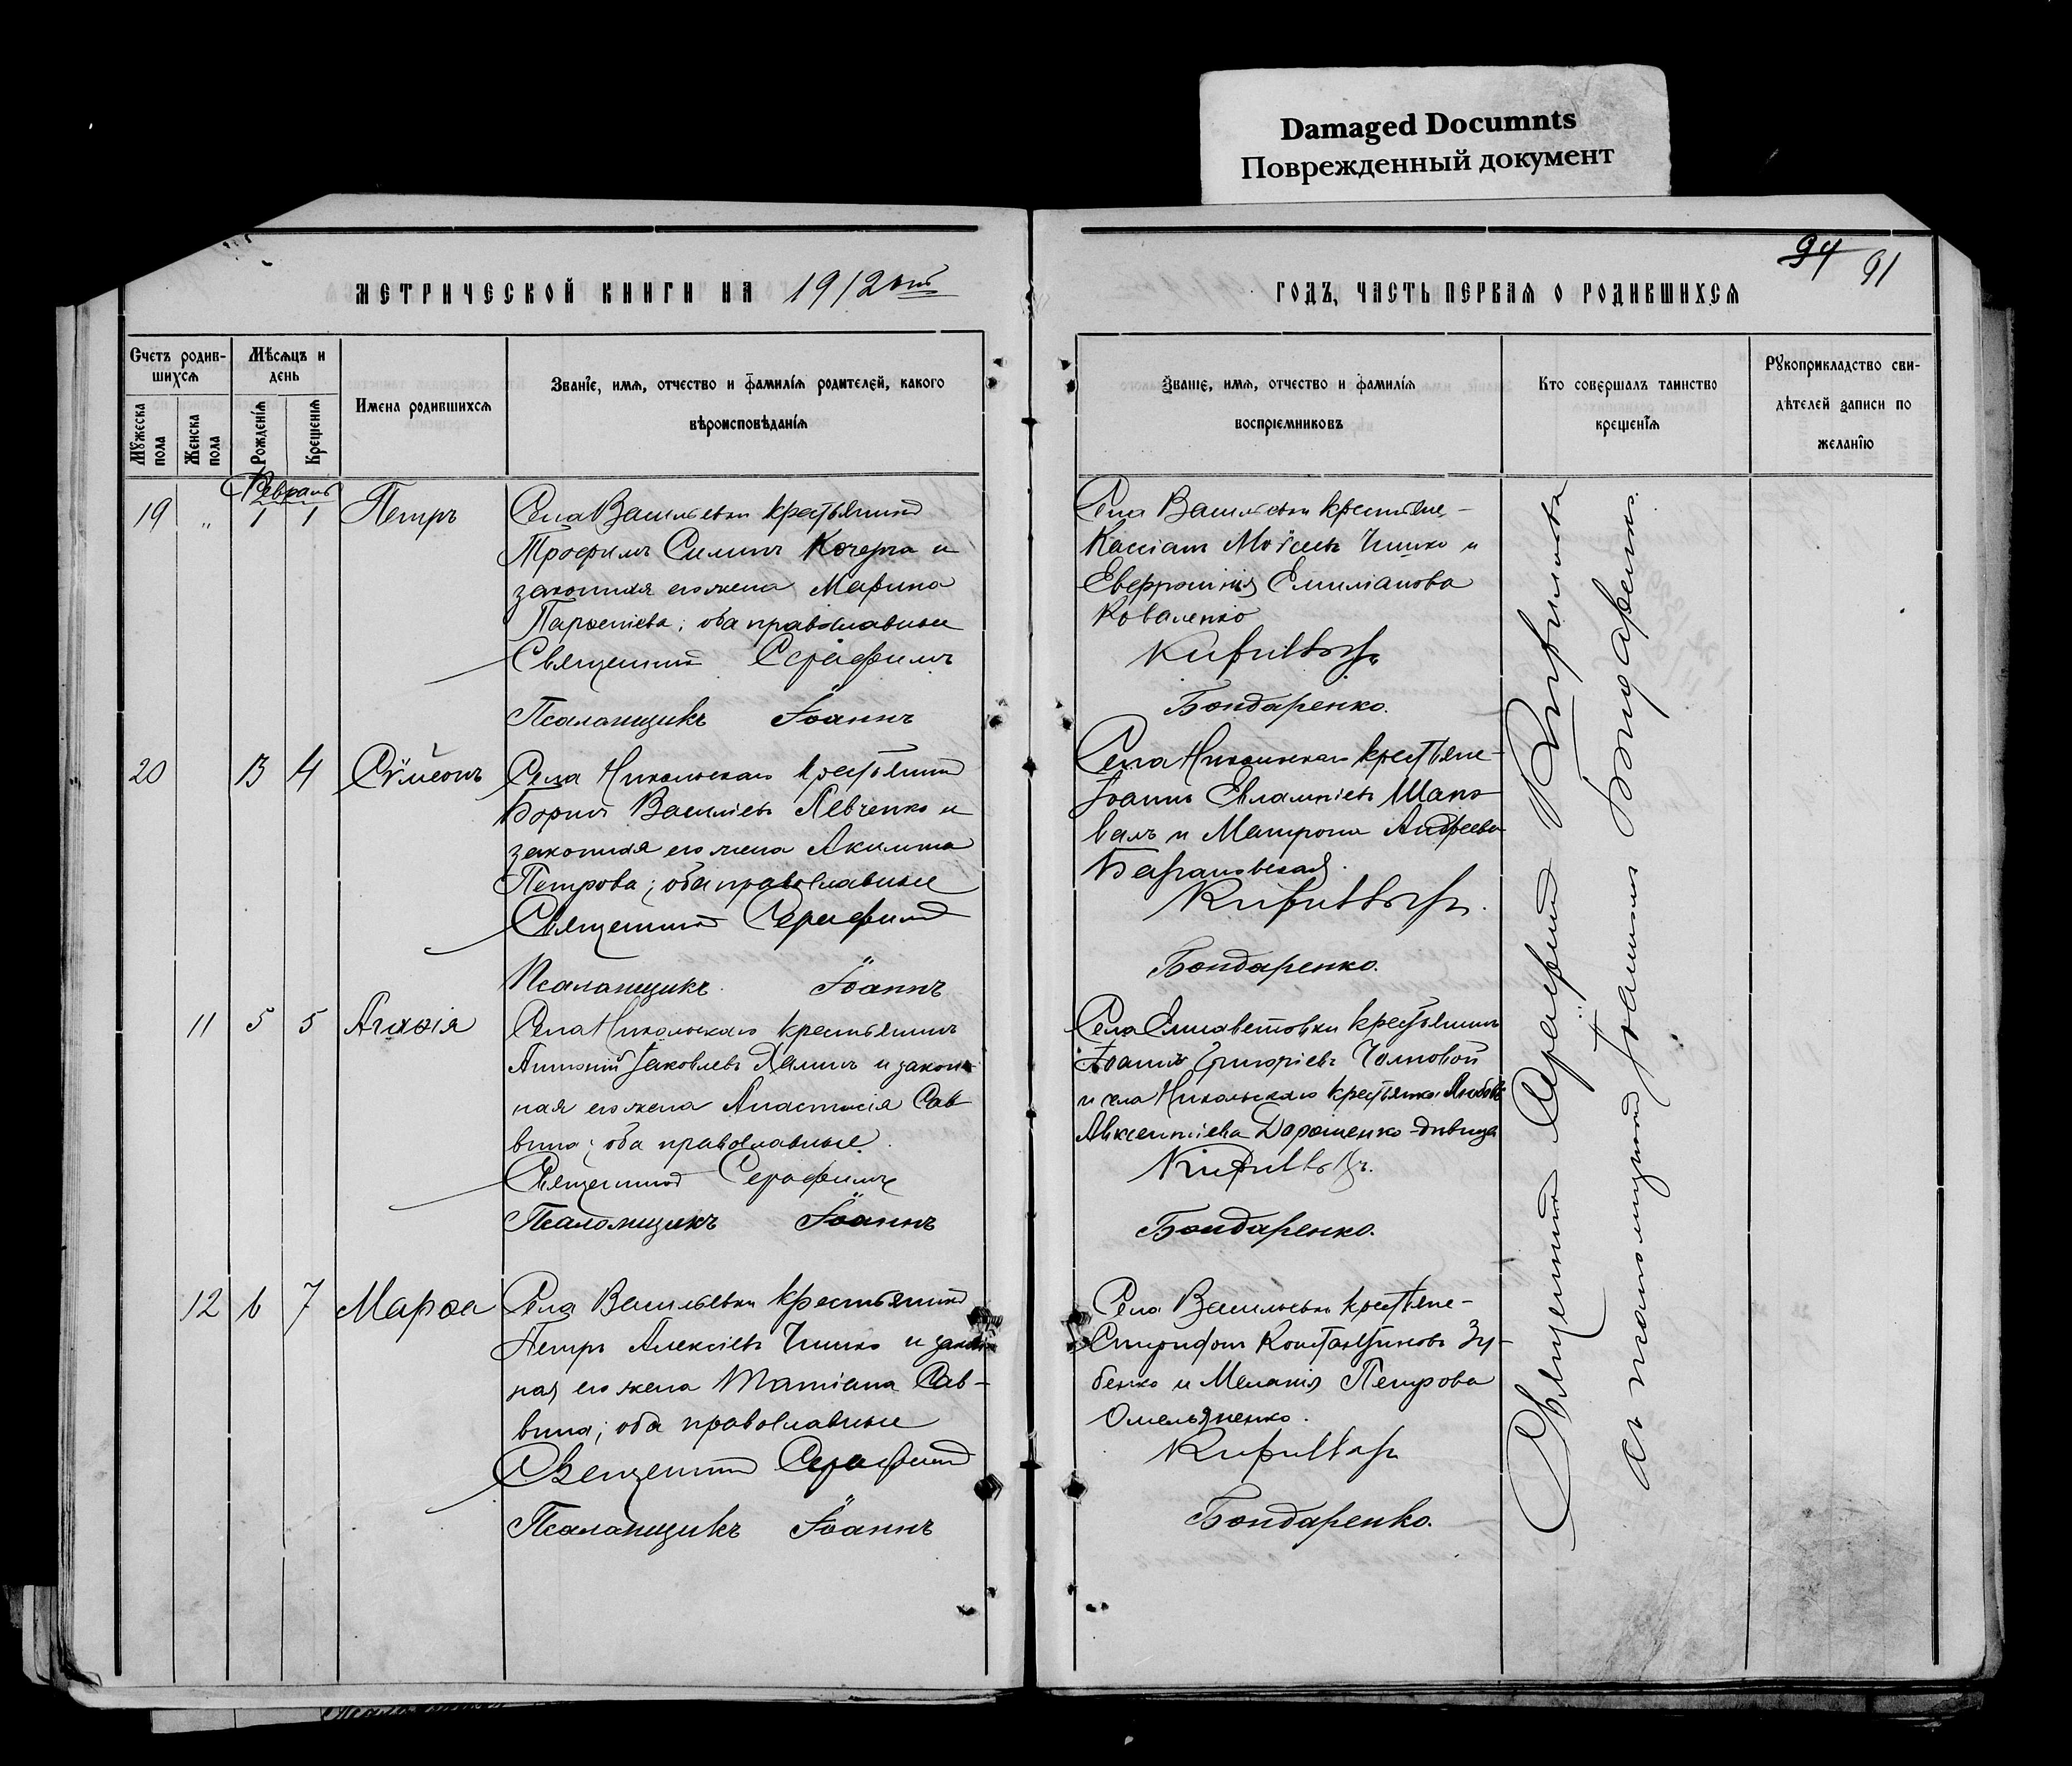 Damaged Documnts
Поврежденный документ
94 91
МЕТРИЧЕСКОЙ КНИГИ НА 1912 ый
ГОДЪ, ЧАСТЬ ПЕРВАЯ О РОДИВШИХСЯ
Счетъ родив-
шихся
Мужеска
пола
Женска
пола
Мѣсяцъ и
день
Рожденія
Крещенія
Имена родившихся
Званіе, имя, отчество и фамилія родителей, какого
вѣроисповѣданія
Званіе, имя, отчество и фамилія
воспріемниковъ
Кто совершалъ таинство
крещенія
Рукоприкладство сви-
дѣтелей записи по
желанію
Февраль
19 „ 1 1 Петръ
Села Васильевки крестьянинъ
Трофимъ Силинъ Кочерга и
законная его жена Марина
Парѳеніева; оба православные
Священникъ Серафимъ
Псаломщикъ Іоаннъ
Села Васильевки крестьяне-
Кассіанъ Моѵсеевъ Чишко и
Евфросинія Емиліанова
Коваленко
Кириллов
Бондаренко.
20 13 14 Сѵмеонъ
Села Никольскаго крестьянинъ
Борисъ Василіевъ Левченко и
законная его жена Акилина
Петрова; оба православные
Священникъ Серафимъ
Псаломщикъ Іоаннъ
Села Никольскаго крестьяне-
Іоаннъ Евлампіевъ Шапо-
валъ и Матрона Андреева
Барановская.
Кириллов
Бондаренко.
11 5 5 Агаѳія
Села Никольскаго крестьянинъ
Антоній Іаковлевъ Халинъ и закон-
ная его жена Анастасія Сав-
вина; оба православные.
Священникъ Серафимъ
Псаломщикъ Іоаннъ
Села Елисаветовки крестьянинъ
Іоаннъ Григоріевъ Чолновой
и села Никольскаго крестьянка Любовь
Авксентіева Дорошенко-дѣвица
Кириллов
Бондаренко.
12 6 7 Марѳа
Села Васильевки крестьянинъ
Петръ Алексіевъ Чишко и закон-
ная его жена Татіана Сав-
вина; оба православные
Священникъ Серафимъ
Псаломщикъ Іоаннъ
Села Васильевки крестьяне-
Спиридонъ Константиновъ Зу-
бенко и Меланія Петрова
Омельяненко.
Кириллов
Бондаренко.
Священникъ Серафимъ Кириллова
съ псаломщикомъ Іоанномъ Бондаренко.